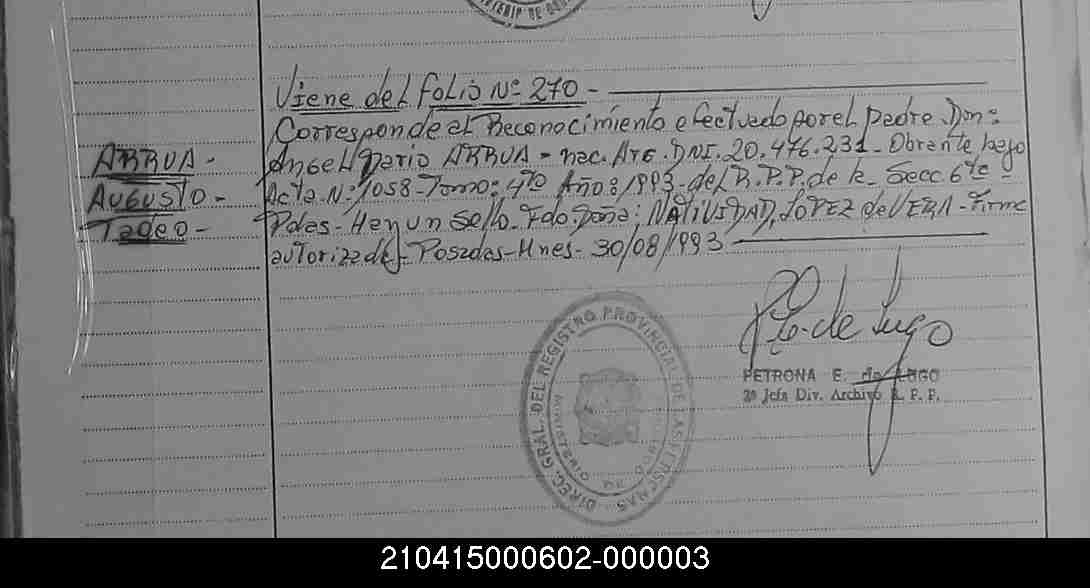 Viene del folio Nº 270 -
Corresponde al Reconocimiento efectuado por el padre Don:
ARRUA -
AUGUSTO -
Tadeo -
Angel Dario ARRUA - nac. Arg. DNI. 20.476.231 - Obrante bajo
Acta Nº 1058 - Tomo: 4to Año: 1993 - del R.P.P. de la Secc. 6ta -
Pdas - Hay un Sello. Fdo. Doña: NATIVIDAD LOPEZ de VERA - Firma
autorizada - Posadas - Mnes - 30/08/1993
DIREC. GRAL. DEL REGISTRO PROVINCIAL DE LAS PERSONAS
MINISTERIO DE GOBIERNO
PETRONA E. de LUGO
2º Jefa Div. Archivo R. P. P.
210415000602-000003